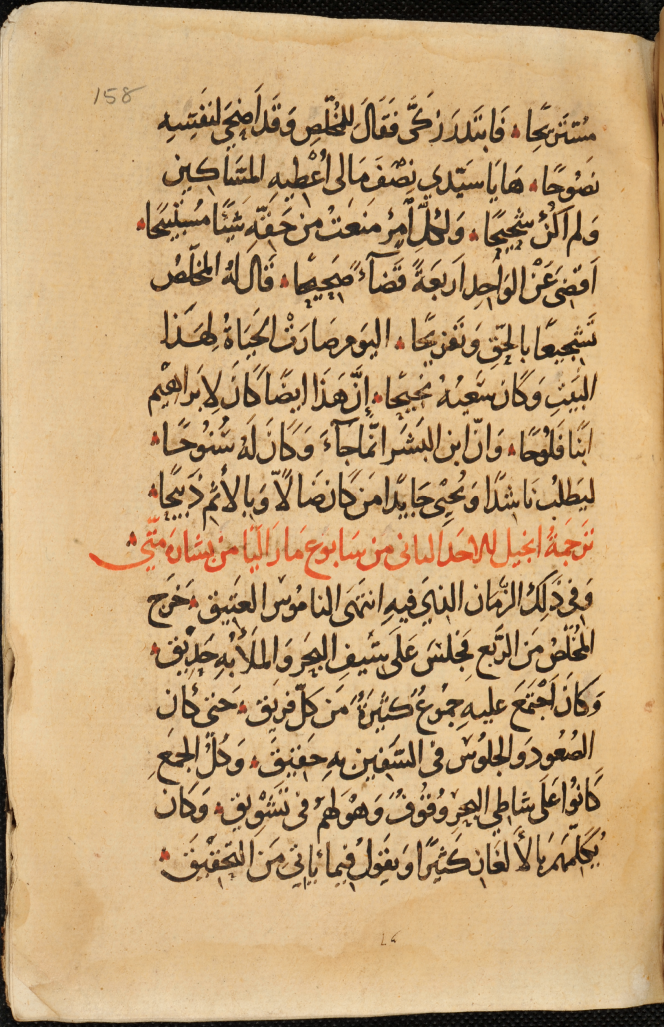 158
مُسْتَرِيحًا، فَابتَدَرَ زَكَّى فَقَالَ للمُخَلِّصِ وَقَد اَضحَى لنَفسِهِ
نَصُوحًا، هَا يَا سَيّدي نِصْفَ مَالى اُعْطِيهِ المسَاكِين
وَلم اَكُنْ شَحِيحًا، وَلكُلّ اَمِرٍ مَنعَتُ من حَقّهِ شَيئًا
اَقضىَ عَنْ الوَاحِدِ اَربَعَةً قَضآءً صَحِيحًا، قَالَ لهُ المخَلّصُ
تَشجِيعًا بالحَقِ وَتَفرِيحًا، اليَومَ صَارَتْ الحَيَاةُ لِهَذا
البَيَتِ وَكَانَ سَعيُهُ نجِيحًا، اِنَّ هَذا ايضًا كَانَ لاِبرَاهيم
ابنًا فَلُوحًا، وَانّ ابنَ البَشَر انّمَا جآءَ وَكَانَ لَهُ سُنُوحًا،
ليَطلُبَ نَاشدًا وَيُحيِى حَايدًا مَن كَانَ ضَالاًّ وَبالاثمِ ذَبِيحًا،
تَرجَمَةُ انجيل للاحَد الثانى من سَابوع مَار اَليّا من بشارَة مَتّى
وَفي ذَلِكَ الزّمَان الذي فيهِ انتَهَى النامُوسَ العَتِيق، خَرج
المُخَلّصُ مَن الرَّبع فجَلسَ عَلَى سَيفِ البَحَرِ وَالملَأ بهِ حَدِيق،
وَكَانَ اَجتَمَعَ عليهِ جمُوعُ كَثيرَةُ مَن كلّ فَريَق، حَتى كَان
الصُعُودَ وَالجلُوسَ فى السَّفِين بهِ حَقِيقَ، وَكُلّ الجمَعِ
كَانُوا عَلَى شاطِي البحَر وُقُوفُ وَهُوَ لَهمُ فى تَشوِيق، وَكَان
يُكَلّمَهَم بالأَلغَاز كَثيرًا وَيقَولُ فيمَا يَاتى مَن التَحقِيق،